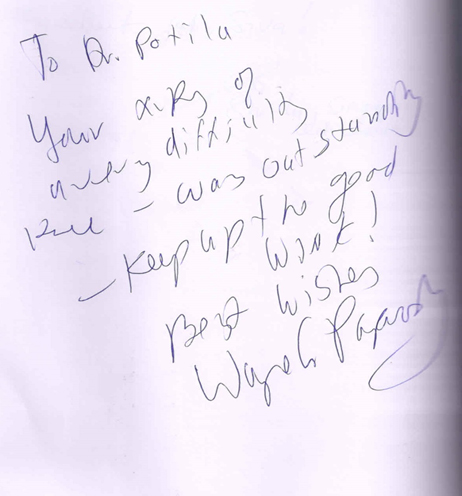 To Dr. Patila
Your x-ray of
a very difficult
knee - was outstanding
- Keep up the good
work!
Best Wishes
Wayne Paprosky